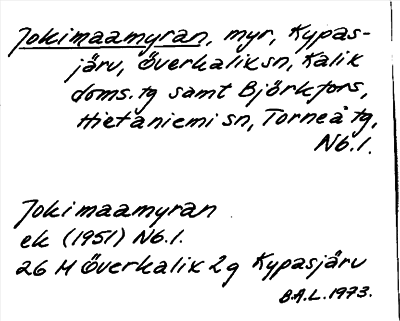 Jokimaamyran, myr, Kypas-
järv, Överkalix sn, Kalix
doms.tg samt Björkfors,
Hietaniemi sn, Torneå tg,
Nb.l.
Jokimaamyran
ek (1951) Nb.l.
26 M Överkalix 2g Kypasjärv
B.A.L. 1973.